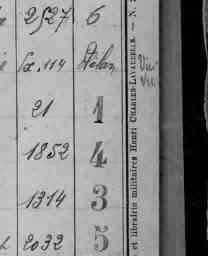 2527 6
21 1
1852 4
1314 3
2032 5
et librairie militaires Henri CHARLES-LAVAUZELLE. — N.